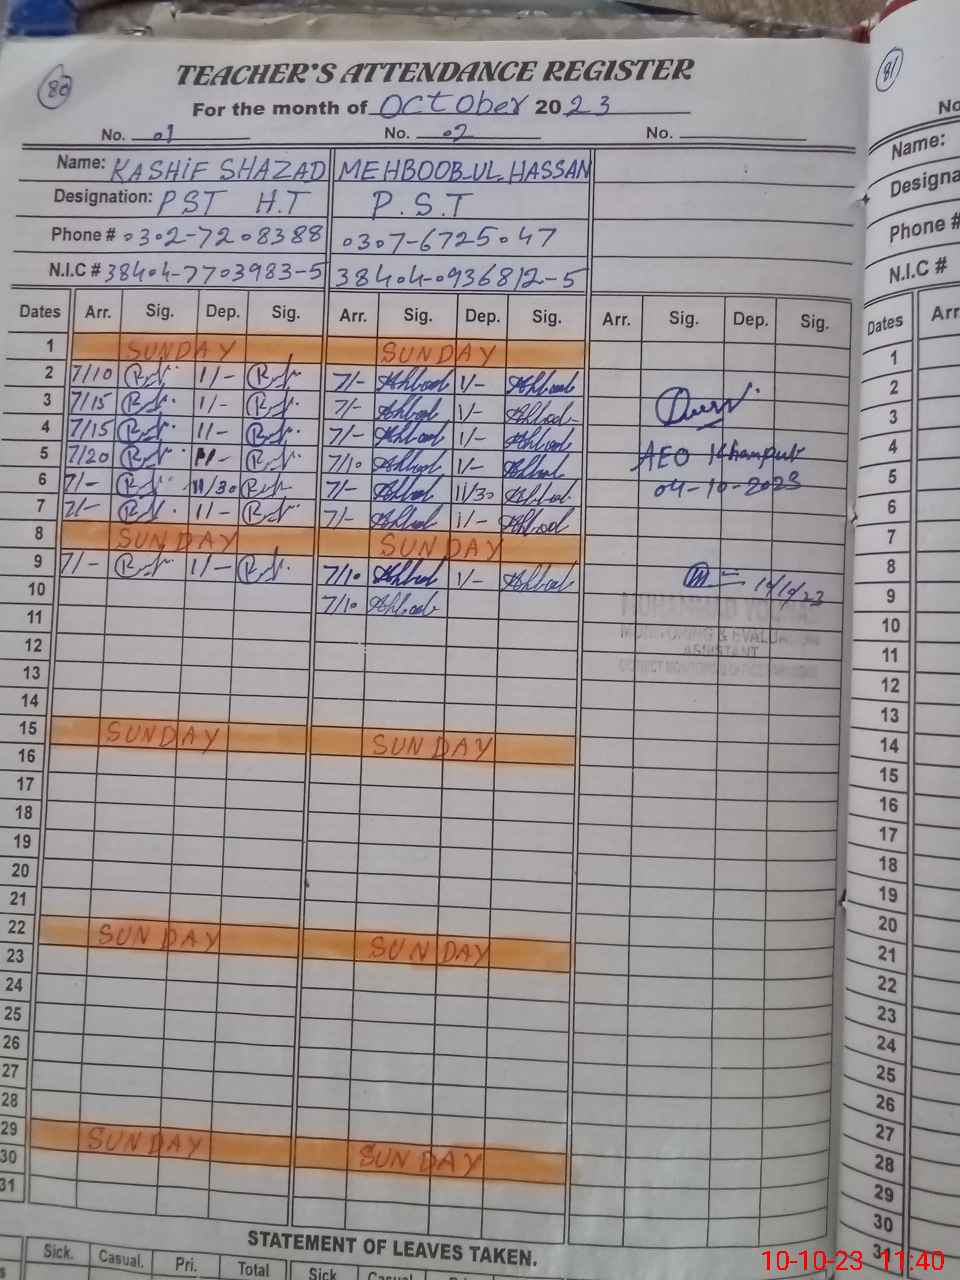 80
TEACHER'S ATTENDANCE REGISTER
For the month of October 2023
No. 01 No. 02 No.
Name: KASHIF SHAZAD MEHBOOB-UL-HASSAN
Designation: PST H.T P.S.T
Phone # 0302-7208388 0307-6725047
N.I.C # 38404-7703983-5 38404-0936812-5
Dates Arr. Sig. Dep. Sig. Arr. Sig. Dep. Sig. Arr. Sig. Dep. Sig.
1 SUNDAY SUNDAY
2 7/10 1/- 7/- 1/-
3 7/15 1/- 7/- 1/-
4 7/15 1/- 7/- 1/-
5 7/20 1/- 7/10 1/- AEO Khanpur
6 7/- 11/30 7/- 11/30 04-10-2023
7 7/- 1/- 7/- 1/-
8 SUNDAY SUNDAY
9 7/- 1/- 7/10 1/-
10 7/10
MONITORING & EVALUATION
ASSISTANT
11
12
13
14
15 SUNDAY SUNDAY
16
17
18
19
20
21
22 SUNDAY SUNDAY
23
24
25
26
27
28
29 SUNDAY SUNDAY
30
31
STATEMENT OF LEAVES TAKEN.
Sick. Casual. Pri. Total Sick Casual
81
No
Name:
Designa
Phone #
N.I.C #
Dates Arr
1
2
3
4
5
6
7
8
9
10
11
12
13
14
15
16
17
18
19
20
21
22
23
24
25
26
27
28
29
30
31
10-10-23 11:40